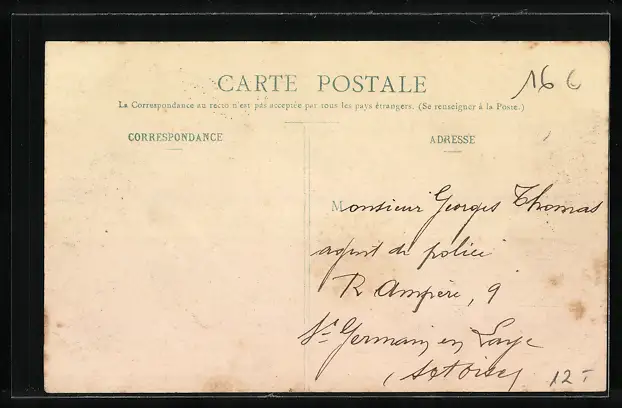 CARTE POSTALE
16 C
La Correspondance au recto n'est pas acceptée par tous les pays étrangers. (Se renseigner à la Poste.)
CORRESPONDANCE
ADRESSE
Monsieur Georges Thomas
agent de police
R Ampère, 9
St Germain en Laye
(Set Oise)
12